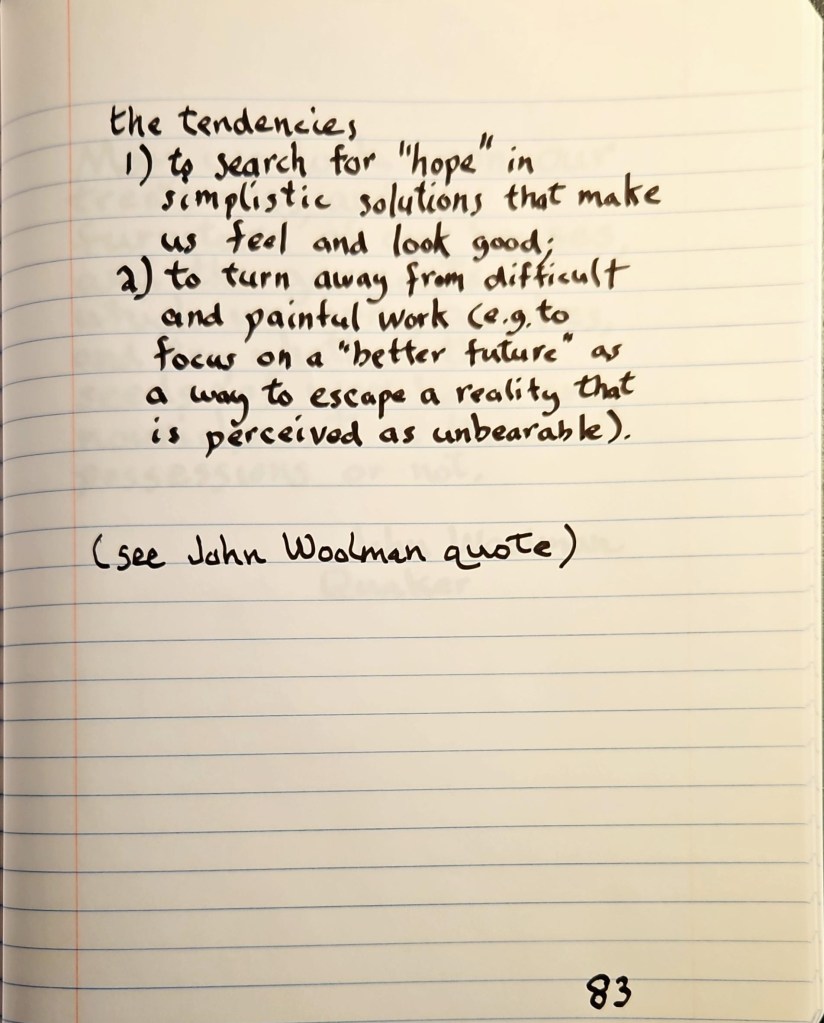 the tendencies
1) to search for "hope" in
simplistic solutions that make
us feel and look good;
2) to turn away from difficult
and painful work (e.g. to
focus on a "better future" as
a way to escape a reality that
is perceived as unbearable).
(see John Woolman quote)
83